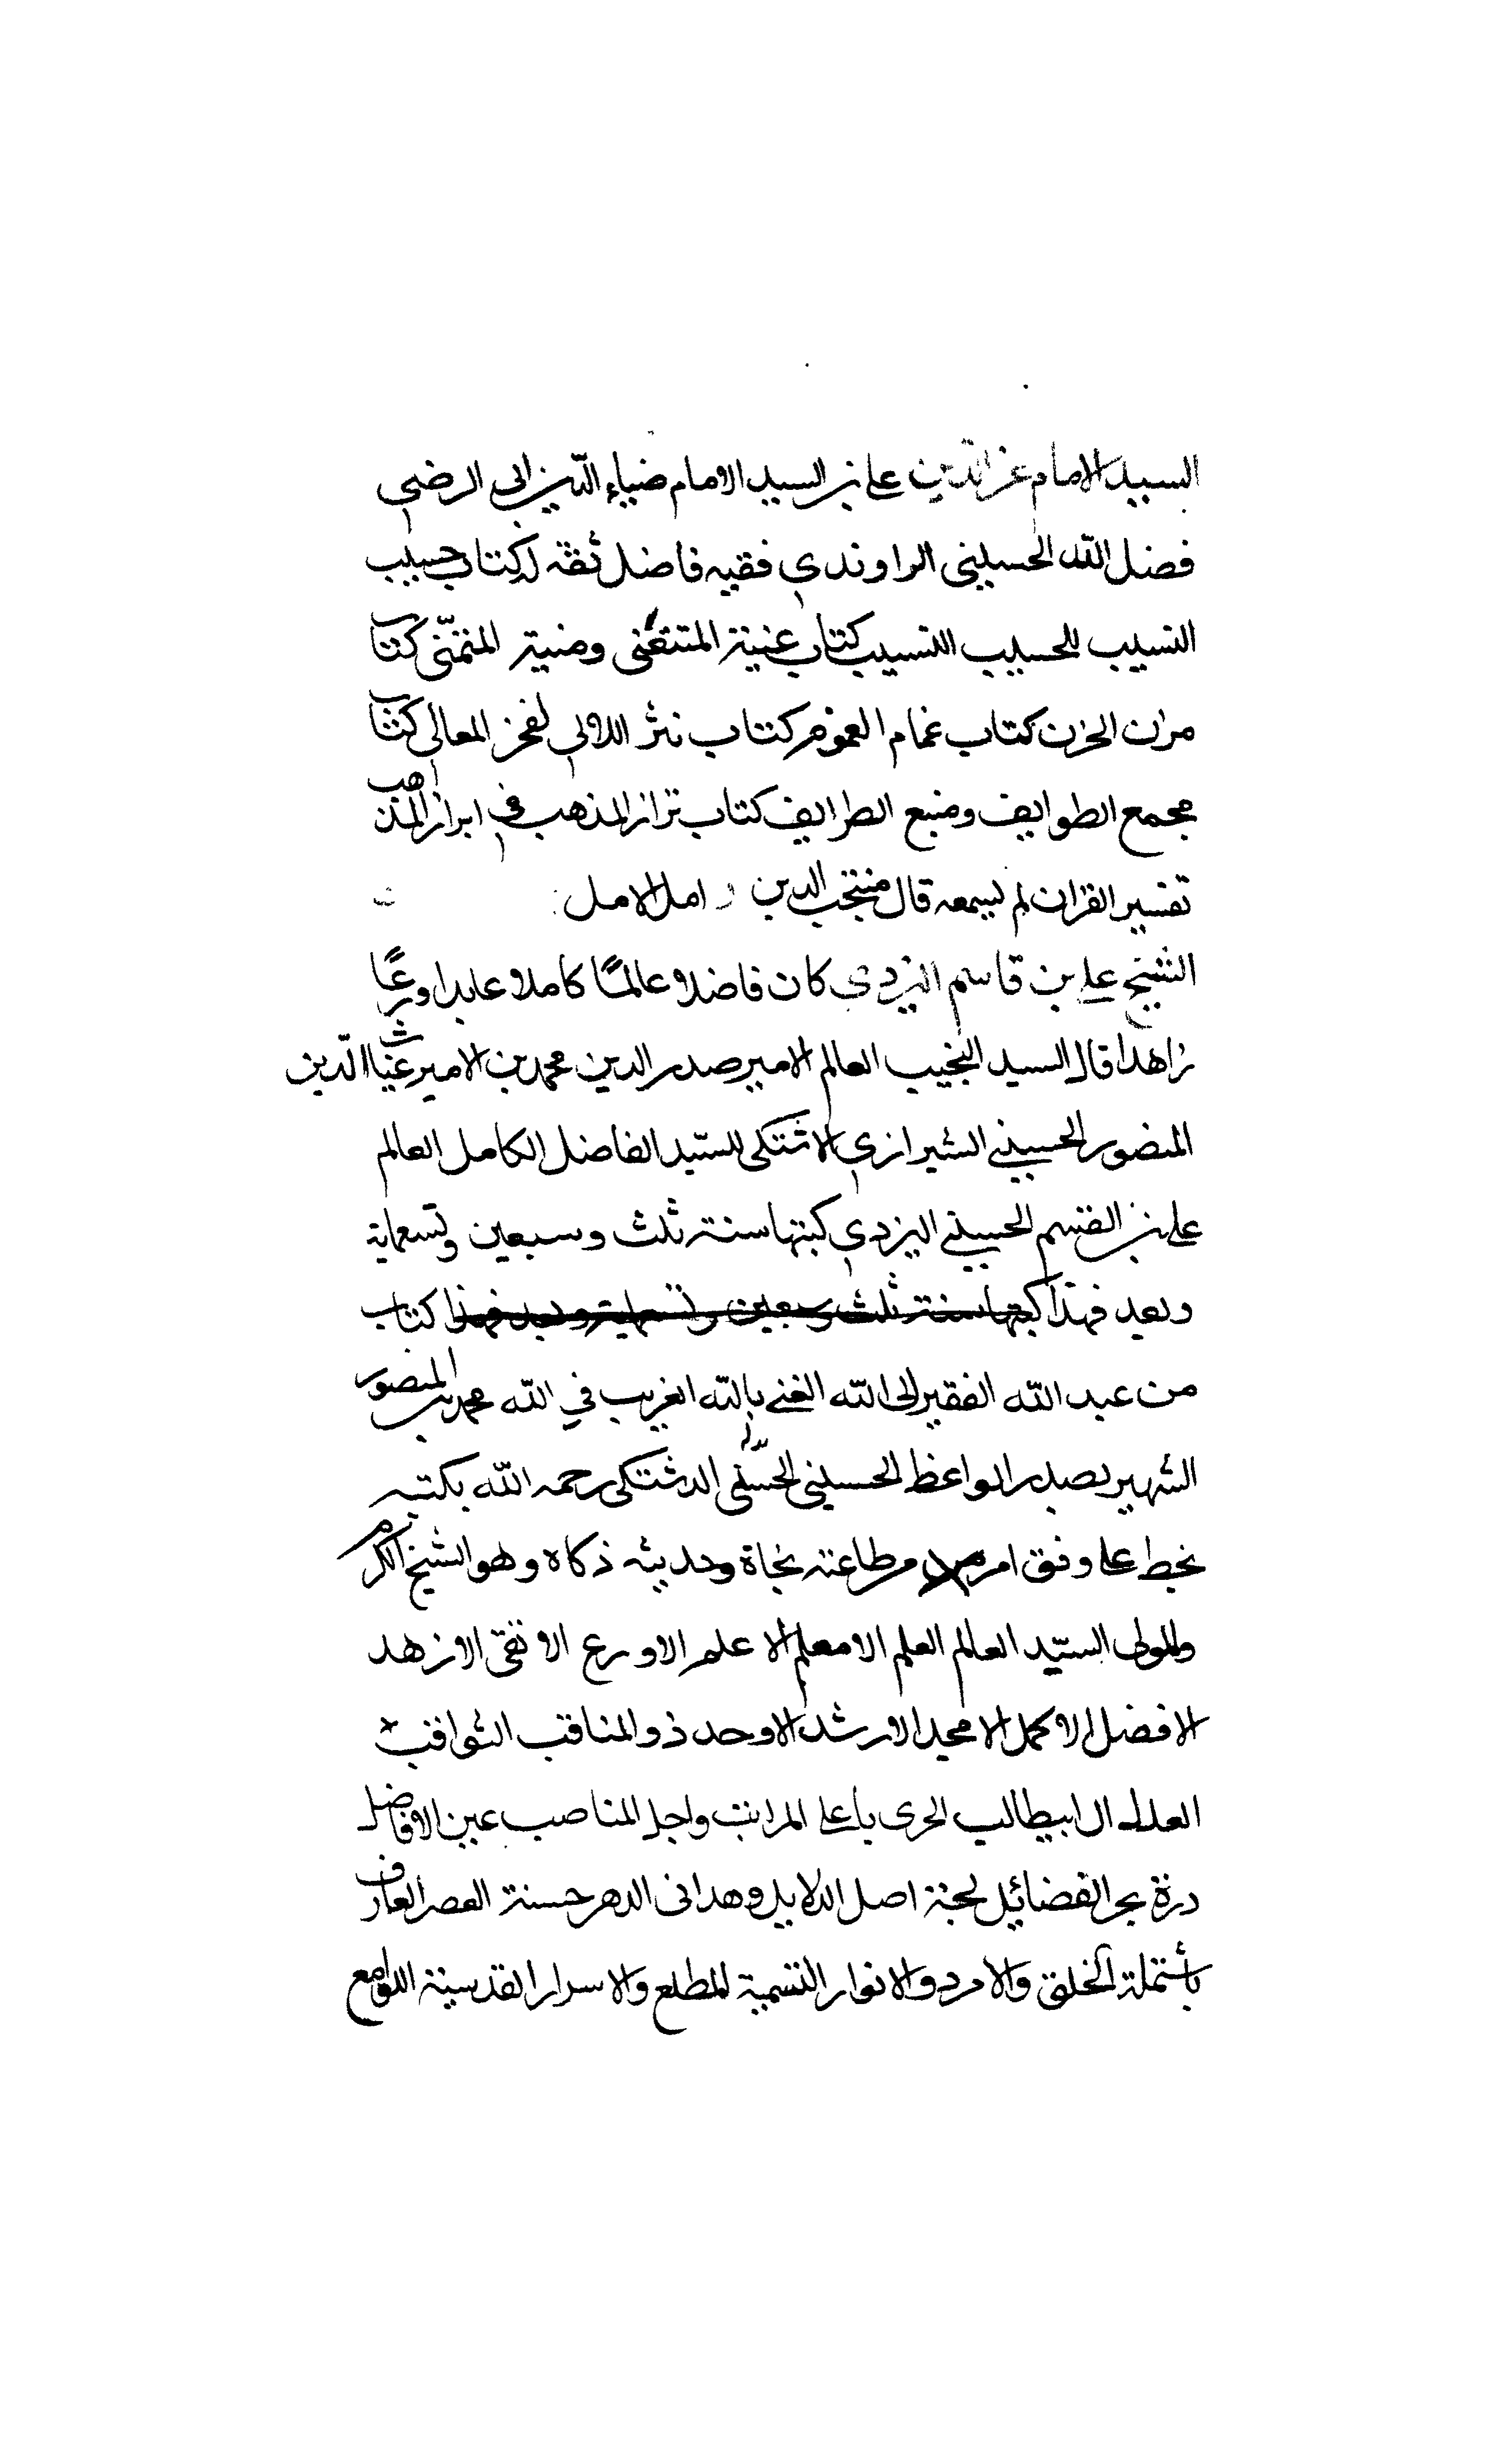 السيد الامام عز الدين علي بن السيد الامام ضياء الدّين ابي الرضي
فضل اللّه الحسيني الراوندي فقيه فاضل ثقة له كتاب حسيب
النسيب للحسيب النسيب كتاب غنية المتغنى ومنية المتمنّي كتاب
مزن الحزن كتاب غمام الغموم كتاب نثر اللالي لفخر المعالي كتاب
مجمع الطوايف ومنبع الطرايف كتاب تراز المذهب في ابراز المذهب
تفسير القران لم يسمعه قال منتجب الدين و امل الامل
الشيخ علي بن قاسم اليزدي كان فاضلا عالمًا كاملا عابدا ورعًا
زاهدا قال السيد النجيب العالم الامير صدر الدين محمد بن الامير غياث الدّين
المنصور الحسيني الشيرازي الاشتكى للسيّد الفاضل الكامل العالم
علي بن القسم الحسيني اليزدي كتبتها سنة ثلث وسبعين وتسعماية
وبعد فهذا كتبتها سنة ثلث وسبعين وتسعماية وبعد فهذا كتاب
من عبد اللّه الفقير الى اللّه الغني باللّه الغريب في اللّه محمد بن المنصور
الشهير بصدر الواعظ الحسيني الحسني الدشتكى رحمه اللّه بكتبه
بخط على وفق امر من طاعته نجاة وحديثه ذكاه وهو الشيخ الاكرم
والمولى السيّد العالم العلم الامعلم الاعلم الاورع الاتقى الازهد
الافضل الاكمل الامجد الارشد الاوحد ذو المناقب الثواقب
العدل ال ابيطالب الحرى باعلى المراتب واجل المناصب عين الافاضل
درة بحر الفضائيل لجنة اصل الدلايل وهدانى الدهر حسنة العصر العارف
الخلق والامر والانوار المطلع والاسرار القدسية اللوامع